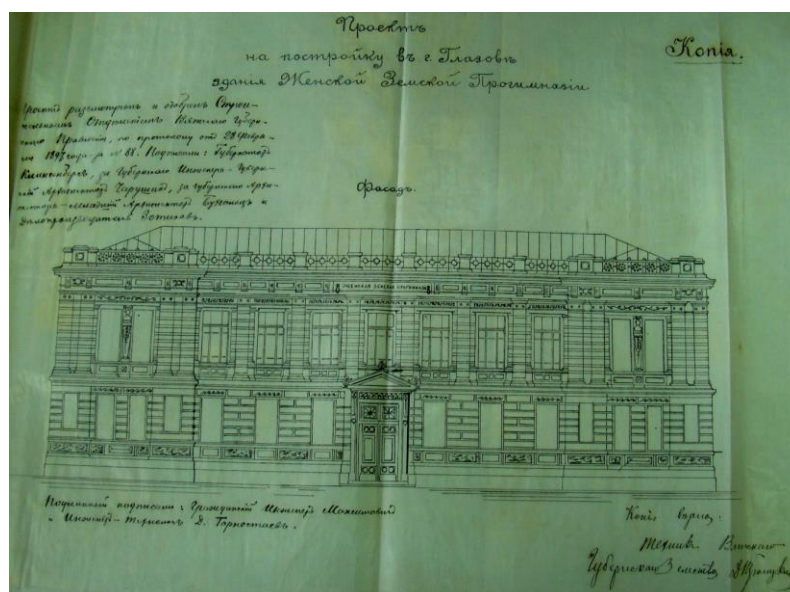 Проектъ
Копія.
на постройку въ г. Глазовѣ
зданія Женской Земской Прогимназіи
Проектъ разсмотренъ и одобренъ Строи-
тельнымъ Отдѣленіемъ Вятскаго Губерн-
скаго Правленія, по протоколу отъ 28 Февра-
ля 1897 года за № 88. Подписали: Губернаторъ
Клингенбергъ, за Губернскаго Инженера - Губерн-
скій Архитекторъ Чарушинъ, за Губернскаго Архи-
тектора - Младшій Архитекторъ и
Дѣлопроизводитель
Фасадъ.
ЖЕНСКАЯ ЗЕМСКАЯ ПРОГИМНАЗІЯ
Подлинный подписали: Гражданскій Инженеръ Максимовичъ
и Инженеръ-Технологъ Д. Горностаевъ.
Копія вѣрна:
Техникъ Вятскаго
Губернскаго Земства